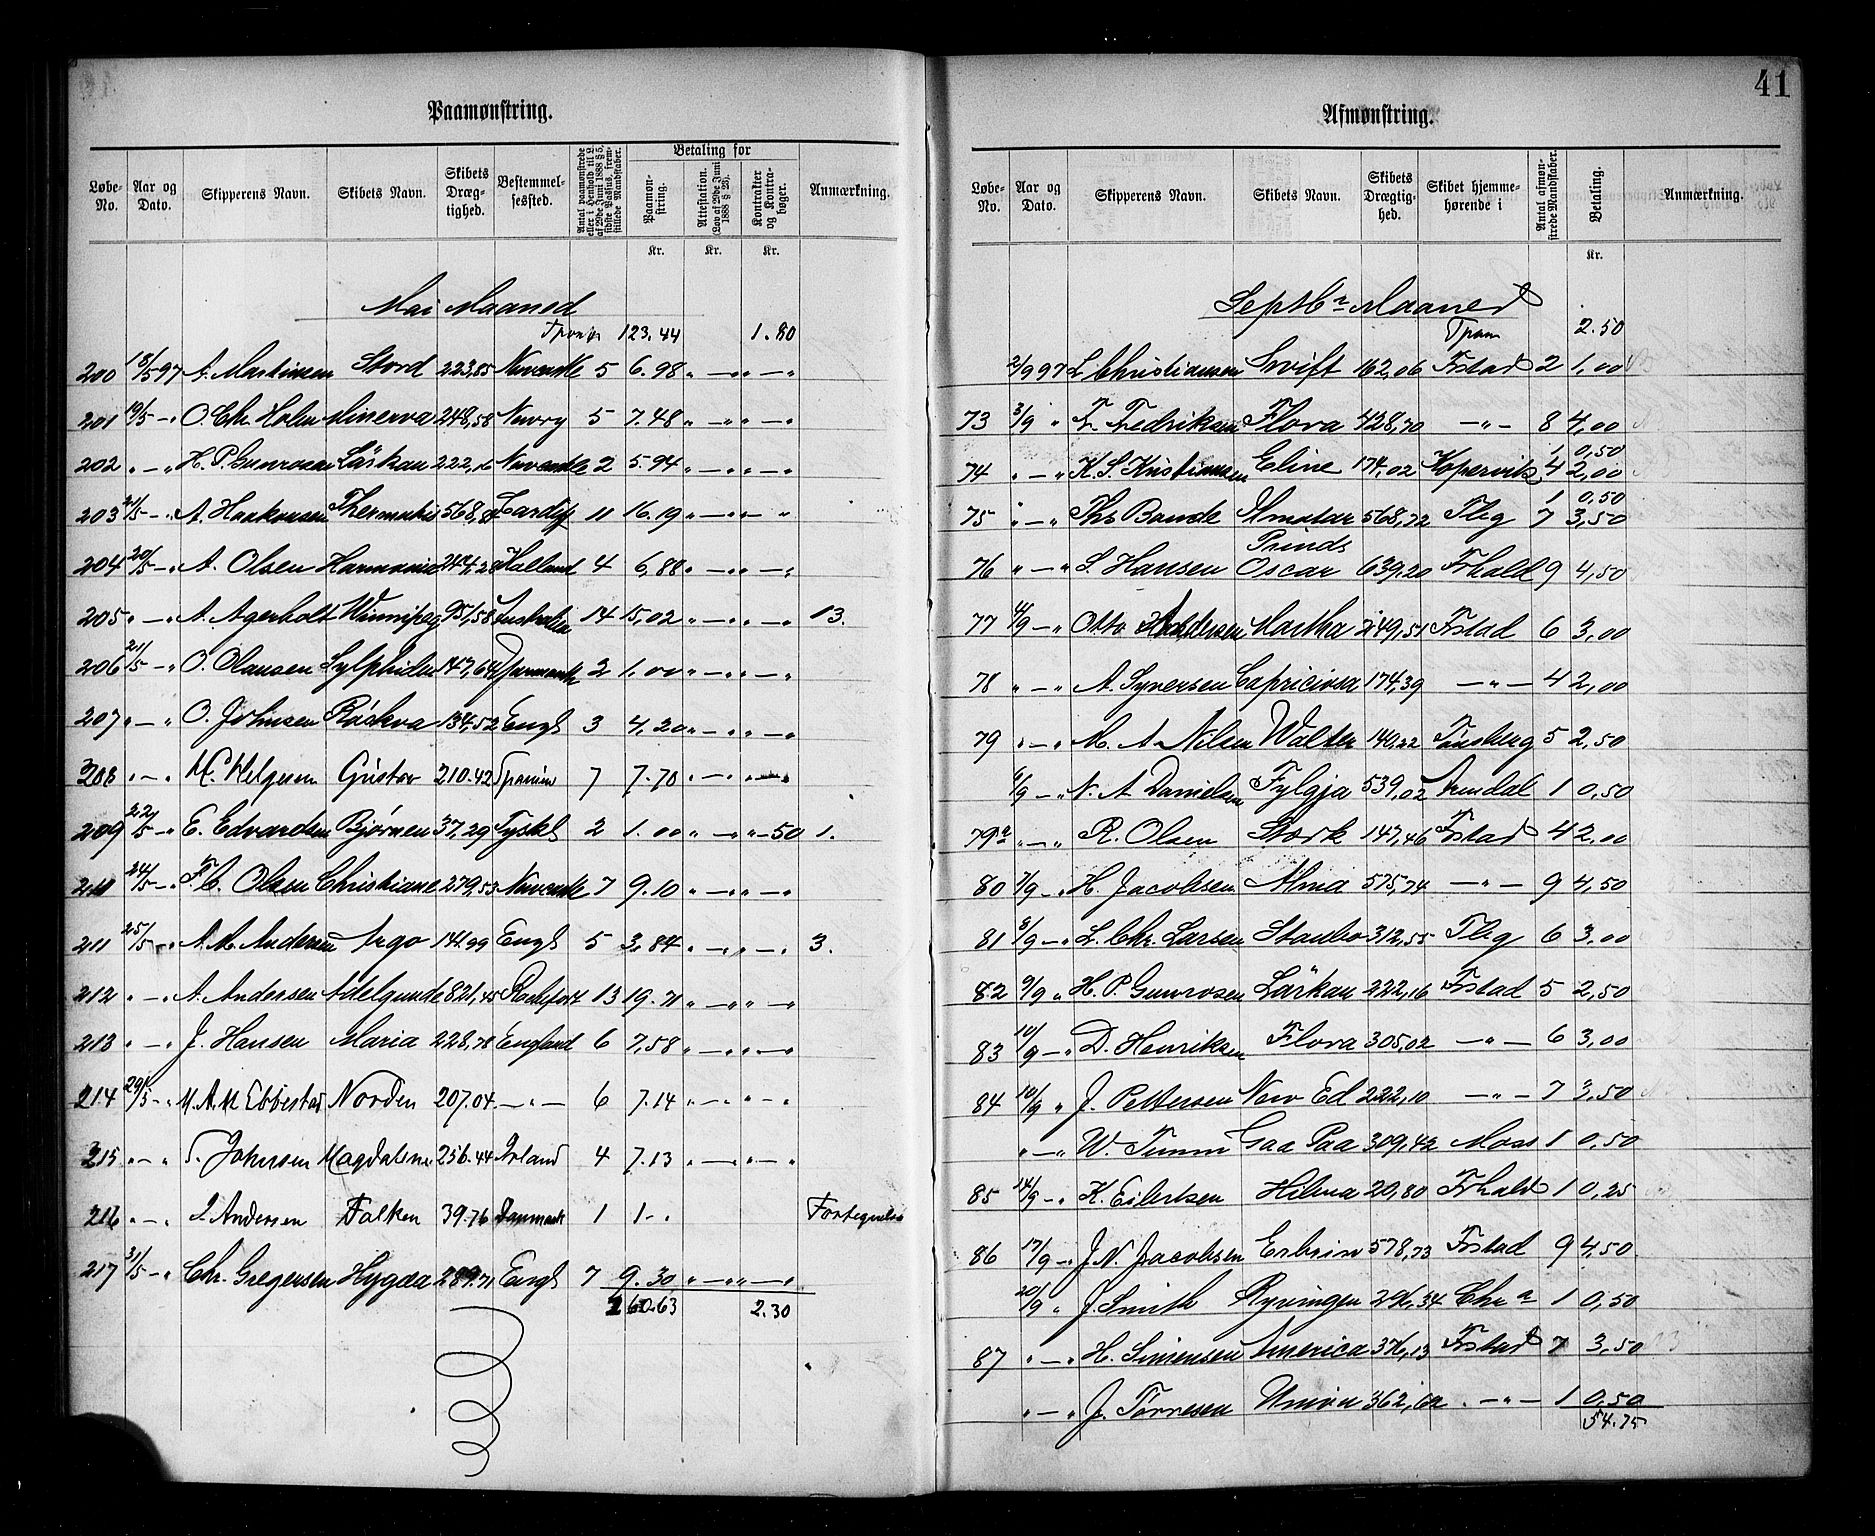 41
Paamønstring.
Løbe-No. Aar og Dato. Skipperens Navn. Skibets Navn. Skibets Dræg-tighed. Bestemmel-sessted. Antal paamønstrede eller i Henhold til L. af 29de Juni 1888 § 5, sidste Passus, frem-stillede Mandskaber. Betaling for Paamøn-string. Attestation. (Lov af 29de Juni 1888 § 28). Kontrakter og Kontra-bøger. Anmærkning.
Kr. Kr. Kr.
Mai Maaned
Transp. 123.44 1.80
200 18/5 97 A. Martinsen Stord 223,85 Newcastle 5 6.98 " — " — "
201 19/5 — " O. Chr. Holm Minerva 248,58 Newry 5 7.48 " — " — "
202 " — " H. P. Gunrosen Lärkan 222,16 Newcastle 2 5.94 " — " — "
203 21/5 — " A. Haakonsen 568,87 Cardiff 11 16.19 " — " — "
204 20/5 — " A. Olsen Harmonia 244,28 Holland 4 6,88 " — " — "
205 " — " A. Agerholt Winnipeg 951,58 Australien 14 15,02 " — " — " 13.
206 21/5 — " O. Olausen Sylphiden 147,64 Danmark 2 1.00 " — " — "
207 " — " O. Johnsen Röskva 134,52 Engl 3 4,20 " — " — "
208 " — " M. Helgesen Gustav 210.42 Spanien 7 7.70 " — " — "
209 22/5 — " E. Edvardsen Bjørnen 37,29 Tyskl 2 1.00 " — " — 50 1.
210 24/5 — " F. C. Olsen Christiane 279,53 Newcastle 7 9.10 " — " — "
211 25/5 — " A. M. Andersen Argo 141,99 Engl 5 3,84 " — " — " 3.
212 " — " A. Andersen Adelgunde 821,45 Rochefort 13 19.71 " — " — "
213 " — " J. Hansen Maria 228,78 England 6 7,58 " — " — "
214 29/5 — " M. A. M. Ebbestad Norden 207.04 — " — 6 7.14 " — " — "
215 " — " S. Johnsen Magdalene 256.44 Irland 4 7.13 " — " — "
216 " — " Andersen Falken 39.76 Danmark 1 1 - " Fortegnelse
217 31/5 — " Chr. Gregersen Hygæa 289.71 Engl 7 9.30 " — " — "
260.63 2.30
Afmønstring.
Løbe-No. Aar og Dato. Skipperens Navn. Skibets Navn. Skibets Drægtig-hed. Skibet hjemme-hørende i Antal afmøn-strede Mandskaber. Betaling. Anmærkning.
Kr.
Septbr Maaned
Tpom 2.50
2/9 97 L. Christiansen Swift 162,06 Fstad 2 1,00
73 3/9 " Fr. Fredriksen Flora 428,70 — " — 8 4,00
1 0,50
74 " — " K. S. Kristiansen Eline 174,02 Kopervik 4 2,00
1 0,50
75 " — " Ths Bande Ilmatar 568,72 Tbg 7 3,50
76 " — " S. Hansen Prinds Oscar 639,20 Frhald 9 4,50
77 4/9 — " Otto Andersen Martha 249,51 Fstad 6 3,00
78 " — " A. Syversen Capriciosa 174,39 — " — 4 2,00
79 " — " M. A. Nilsen Walter 140,22 Tønsberg 5 2,50
6/9 — " N. A. Danielsen Fylgja 539,02 Arendal 1 0,50
79a " — " R. Olsen Stærk 147,46 Fstad 4 2,00
80 7/9 — " H. Jacobsen Alma 575,74 — " — 9 4,50
81 8/9 — " L. Chr. Larsen Staubo 312,55 Tbg 6 3,00
82 9/9 " H. P. Gunrosen Lärkan 222,16 Fstad 5 2,50
83 10/9 — " D. Henriksen Flora 305,02 — " — 6 3,00
84 10/9 " J. Pettersen New Ed 222,10 — " — 7 3,50
" — " W. Timm Gaa Paa 309,42 Moss 1 0,50
85 14/9 — " K. Eilertsen Hilma 20,80 Frhald 1 0,25
86 17/9 — " J. N. Jacobsen 578,73 Fstad 9 4,50
20/9 " J. Smith Ryvingen 296,34 Chr a 1 0,50
87 " — " H. Simensen America 376,13 Fstad 7 3,50
" — " J. Tørresen Union 362,62 — " — 1 0,50
54.75